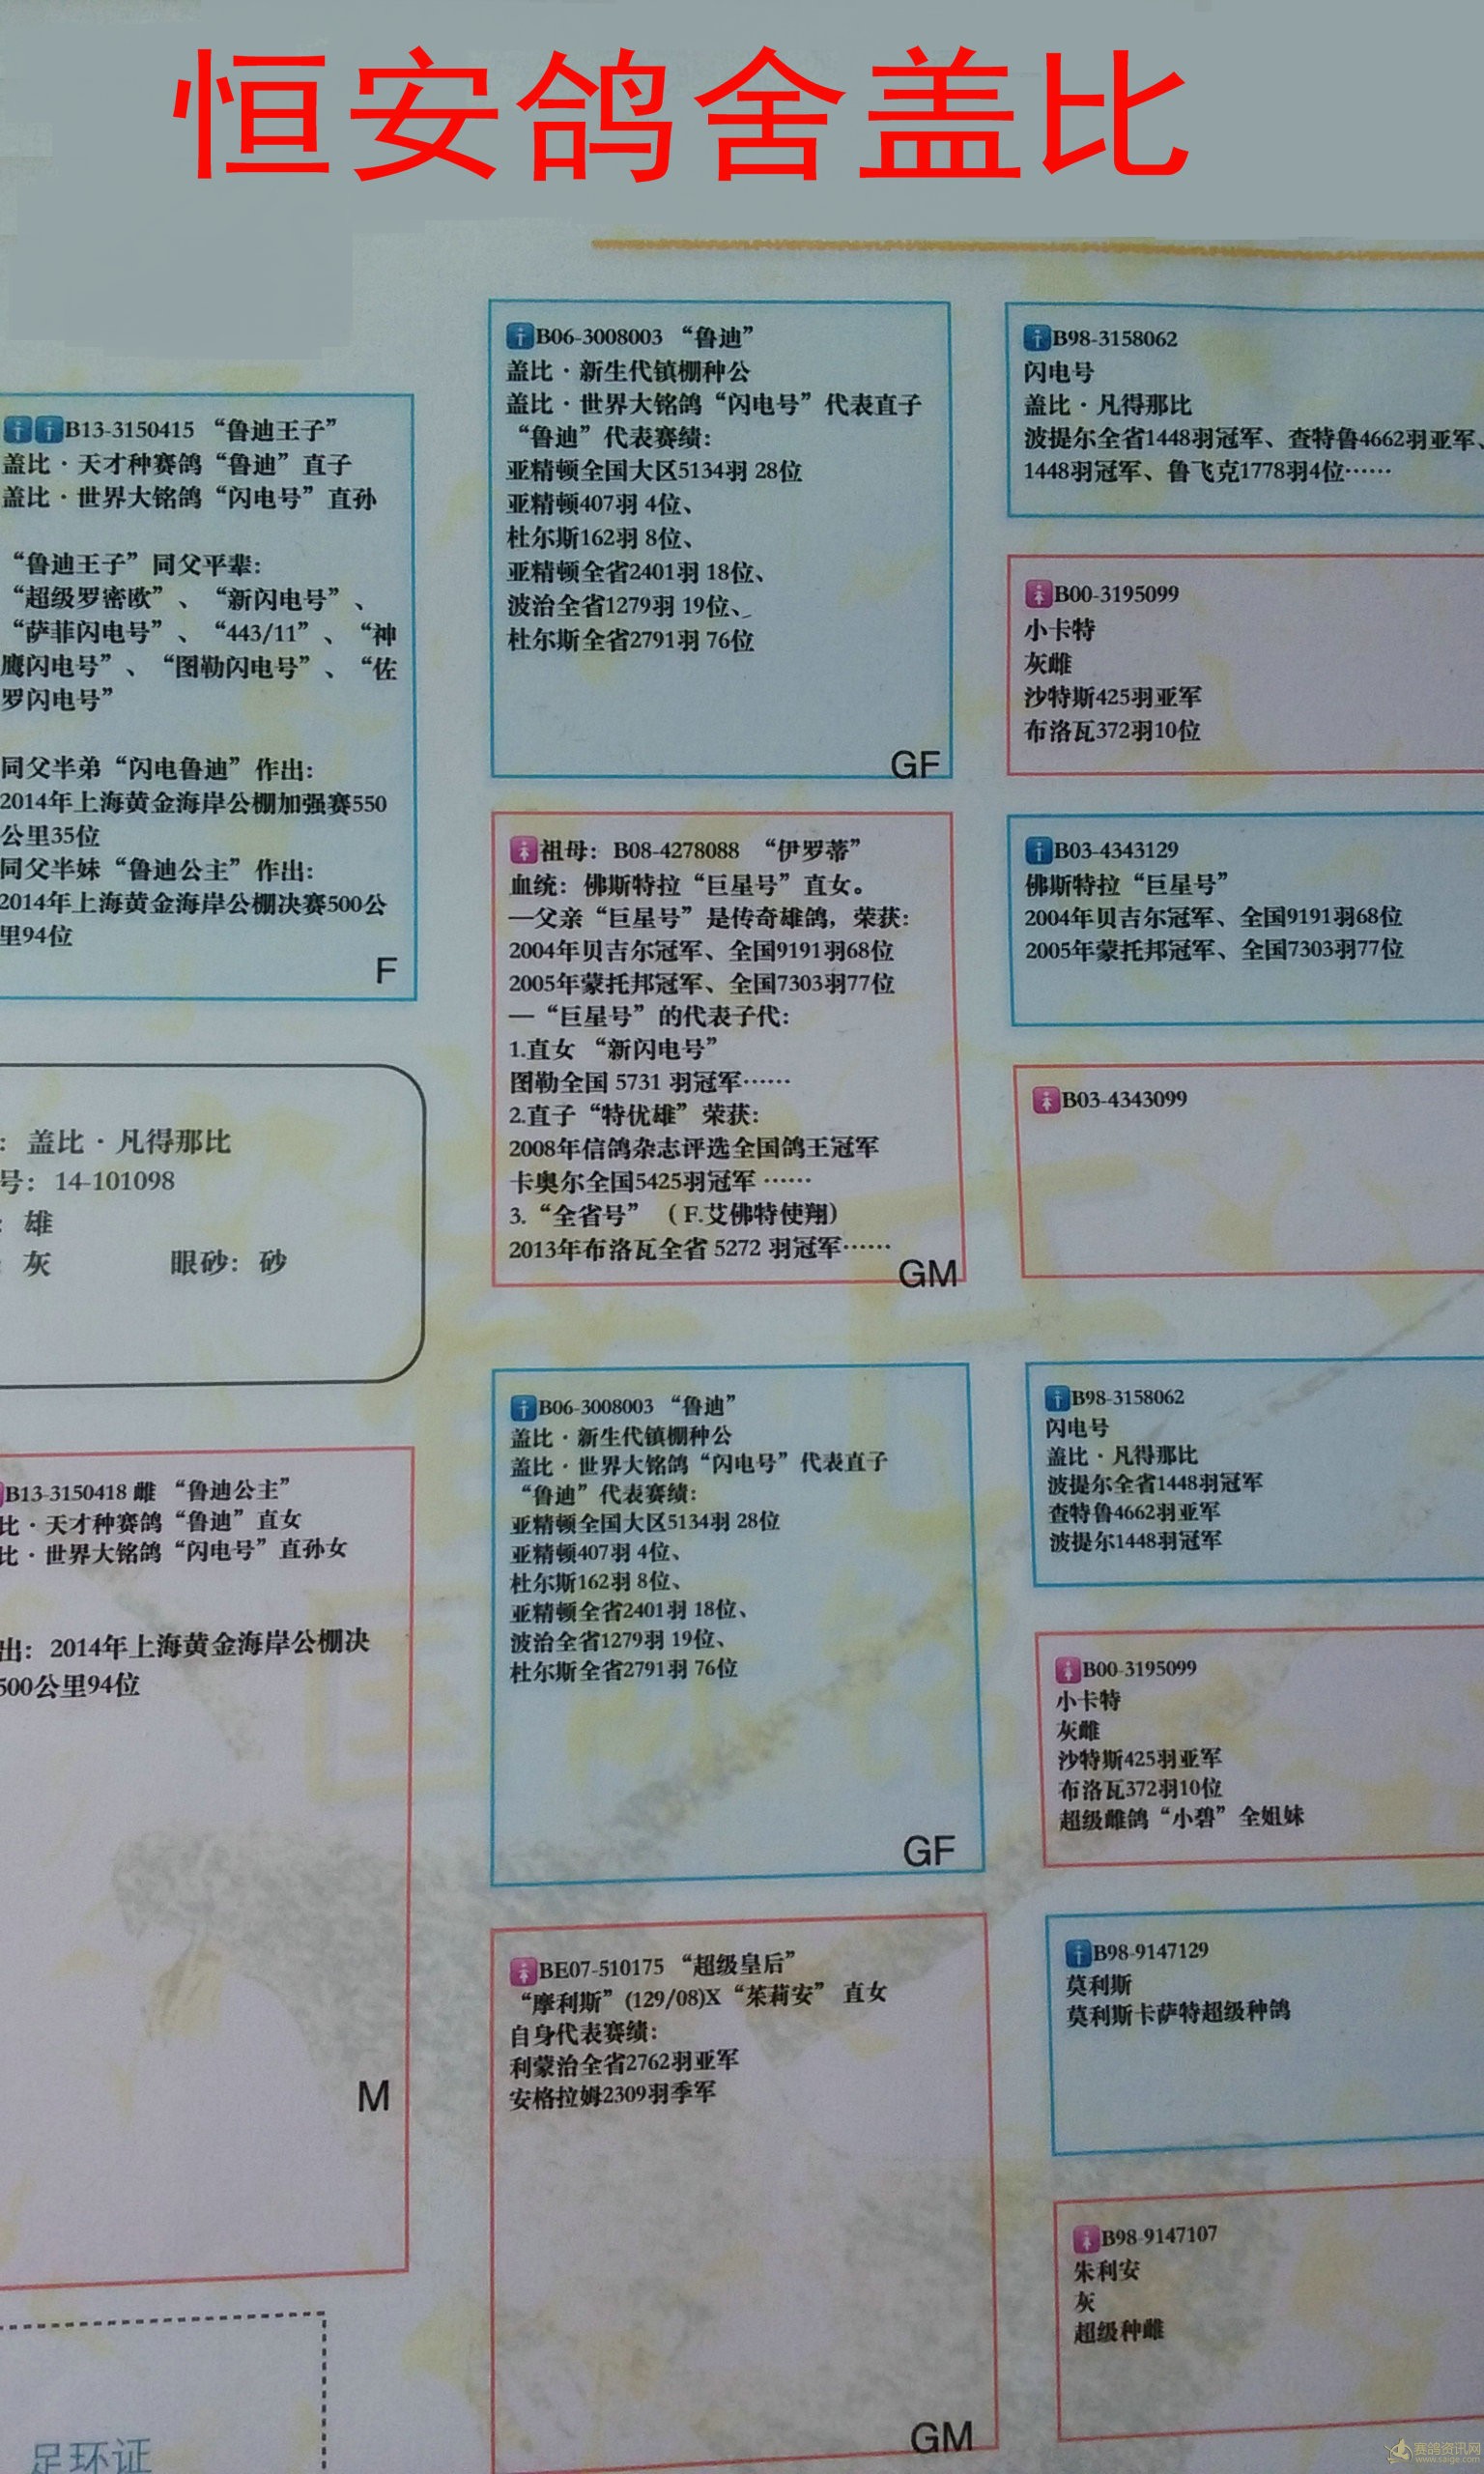 恒安鸽舍盖比
B13-3150415 “鲁迪王子”
盖比·天才种赛鸽“鲁迪”直子
盖比·世界大铭鸽“闪电号”直孙
“鲁迪王子”同父平辈：
“超级罗密欧”、“新闪电号”、
“萨菲闪电号”、“443/11”、“神
鹰闪电号”、“图勒闪电号”、“佐
罗闪电号”
同父半弟“闪电鲁迪”作出：
2014年上海黄金海岸公棚加强赛550
公里35位
同父半妹“鲁迪公主”作出：
2014年上海黄金海岸公棚决赛500公
里94位
F
：盖比·凡得那比
号：14-101098
：雄
：灰 眼砂：砂
B13-3150418 雌 “鲁迪公主”
比·天才种赛鸽“鲁迪”直女
比·世界大铭鸽“闪电号”直孙女
出：2014年上海黄金海岸公棚决
500公里94位
M
足环证
B06-3008003 “鲁迪”
盖比·新生代镇棚种公
盖比·世界大铭鸽“闪电号”代表直子
“鲁迪”代表赛绩：
亚精顿全国大区5134羽 28位
亚精顿407羽 4位、
杜尔斯162羽 8位、
亚精顿全省2401羽 18位、
波治全省1279羽 19位、
杜尔斯全省2791羽 76位
GF
祖母：B08-4278088 “伊罗蒂”
血统：佛斯特拉“巨星号”直女。
—父亲“巨星号”是传奇雄鸽，荣获：
2004年贝吉尔冠军、全国9191羽68位
2005年蒙托邦冠军、全国7303羽77位
—“巨星号”的代表子代：
1.直女 “新闪电号”
图勒全国 5731 羽冠军……
2.直子“特优雄”荣获：
2008年信鸽杂志评选全国鸽王冠军
卡奥尔全国5425羽冠军 ……
3.“全省号”（ F.艾佛特使翔）
2013年布洛瓦全省 5272 羽冠军……
GM
B06-3008003 “鲁迪”
盖比·新生代镇棚种公
盖比·世界大铭鸽“闪电号”代表直子
“鲁迪”代表赛绩：
亚精顿全国大区5134羽 28位
亚精顿407羽 4位、
杜尔斯162羽 8位、
亚精顿全省2401羽 18位、
波治全省1279羽 19位、
杜尔斯全省2791羽 76位
GF
BE07-510175 “超级皇后”
“摩利斯”(129/08)X“茱莉安” 直女
自身代表赛绩：
利蒙治全省2762羽亚军
安格拉姆2309羽季军
GM
B98-3158062
闪电号
盖比·凡得那比
波提尔全省1448羽冠军、查特鲁4662羽亚军、
1448羽冠军、鲁飞克1778羽4位……
B00-3195099
小卡特
灰雌
沙特斯425羽亚军
布洛瓦372羽10位
B03-4343129
佛斯特拉“巨星号”
2004年贝吉尔冠军、全国9191羽68位
2005年蒙托邦冠军、全国7303羽77位
B03-4343099
B98-3158062
闪电号
盖比·凡得那比
波提尔全省1448羽冠军
查特鲁4662羽亚军
波提尔1448羽冠军
B00-3195099
小卡特
灰雌
沙特斯425羽亚军
布洛瓦372羽10位
超级雌鸽“小碧”全姐妹
B98-9147129
莫利斯
莫利斯卡萨特超级种鸽
B98-9147107
朱利安
灰
超级种雌
赛鸽资讯网
www.saige.com